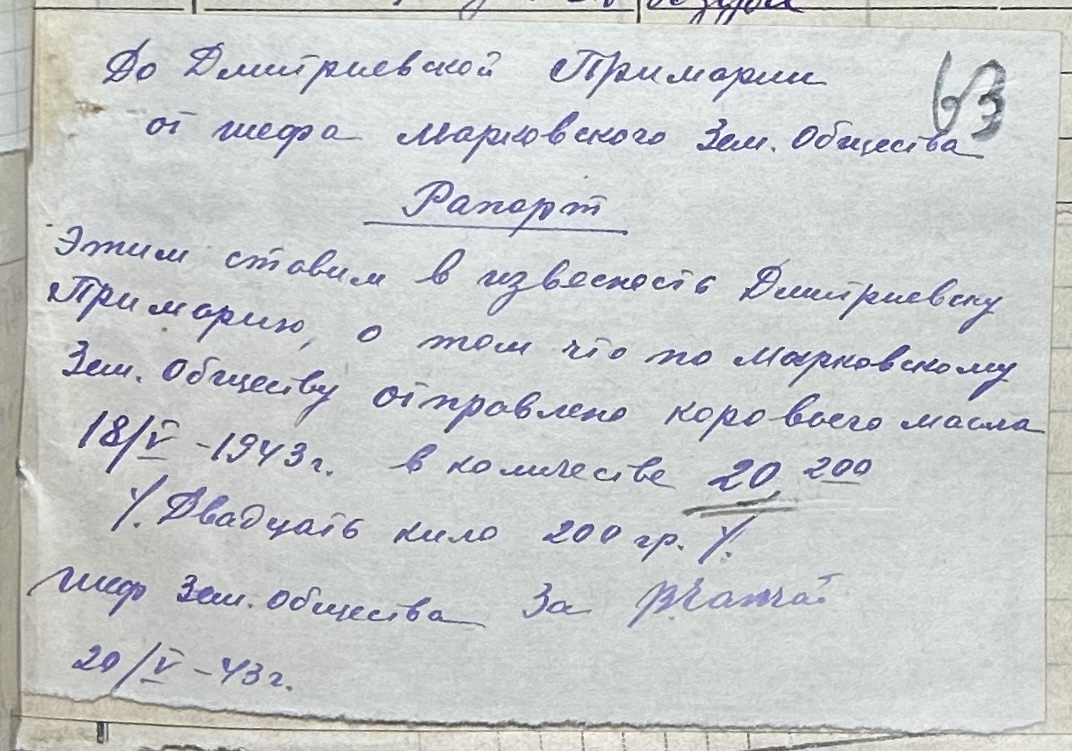 63
До Дмитриевской Примарии
от шефа Марковского Зем. Общества
Рапорт
Этим ставим в извесность Дмитриевску
Примарию, о том что по Марковскому
Зем. Обществу отправлено коровьего масла
18/V -1943г. в количестве 20 200
/. Двадцать кило 200 гр. /.
шеф Зем. общества За
20/V -43г.